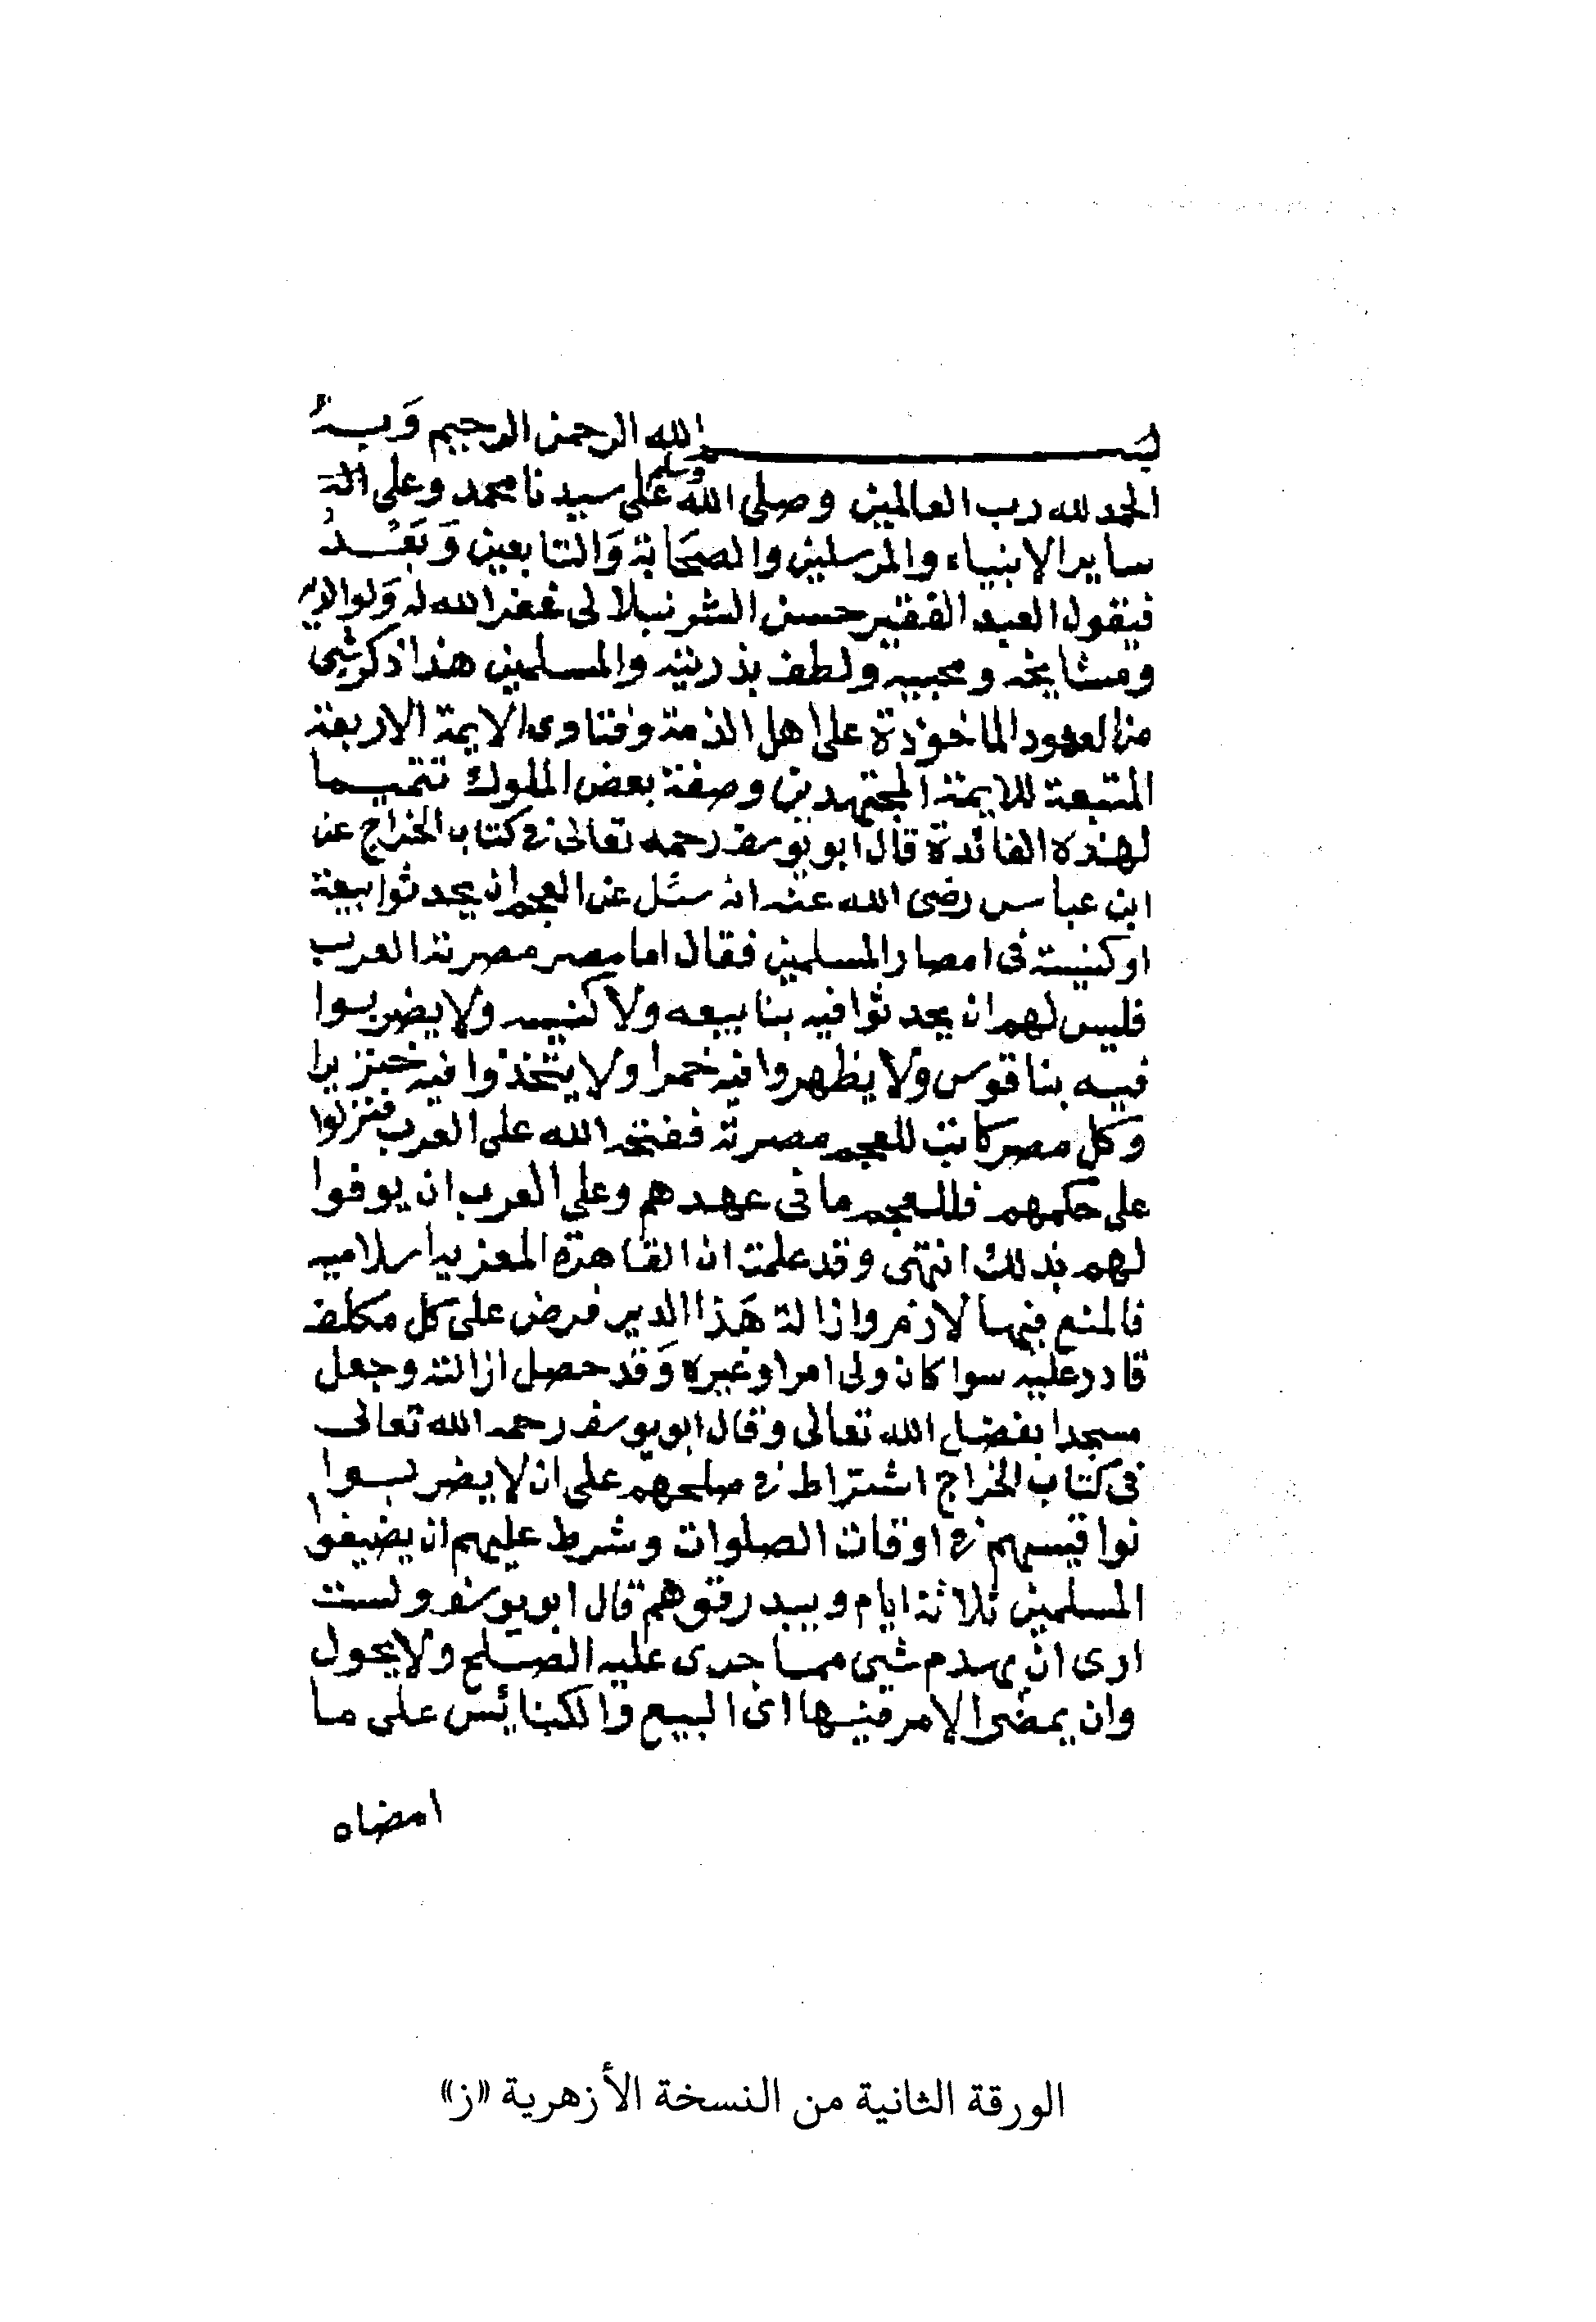 بسم الله الرحمن الرحيم وبه
الحمد لله رب العالمين وصلى الله وسلم على سيدنا محمد وعلى اله
ساير الانبياء والمرسلين والصحابة والتابعين وبعد
فيقول العبد الفقير حسن الشرنبلالى غفر الله له ولوالديه
ومشايخه ومحبيه ولطف بذريته والمسلمين هذا ذكر شى
من العهود الماخوذة على اهل الذمة وفتاوى الايمة الاربعة
المتبعة للايمة المجتهدين وصفة بعض الملوك تتميما
لهذه الفائدة قال ابو يوسف رحمه تعالى فى كتاب الخراج عن
ابن عباس رضى الله عنه انه سئل عن العجم ان يحدثوا بيعة
او كنيسة فى امصار المسلمين فقال اما مصر مصرته العرب
فليس لهم ان يحدثوا فيه بنا بيعه ولا كنيسه ولا يضربوا
فيه بناقوس ولا يظهروا فيه خمرا ولا يتخذوا فيه خنزيرا
وكل مصر كانت للعجم مصرته ففتحه الله على العرب فنزلوا
على حكمهم فللعجم ما فى عهدهم وعلى العرب ان يوفوا
لهم بذلك انتهى وقد علمت ان القاهرة المعزيه اسلاميه
فالمنع فيها لازم وازالة هذا الدير فرض على كل مكلف
قادر عليه سوا كان ولى امر او غيره وقد حصل ازالته وجعل
مسجدا بفضل الله تعالى وقال ابو يوسف رحمه الله تعالى
فى كتاب الخراج اشتراط فى صلحهم على ان لا يضربوا
نواقيسهم فى اوقات الصلوات وشرط عليهم ان يضيفوا
المسلمين ثلاثة ايام ويبدرقوهم قال ابو يوسف ولست
ارى ان يهدم شى مما جرى عليه الصلح ولا يحول
وان يمضى الامر فيها اى البيع والكنايس على ما
امضاه
الورقة الثانية من النسخة الأزهرية «ز»